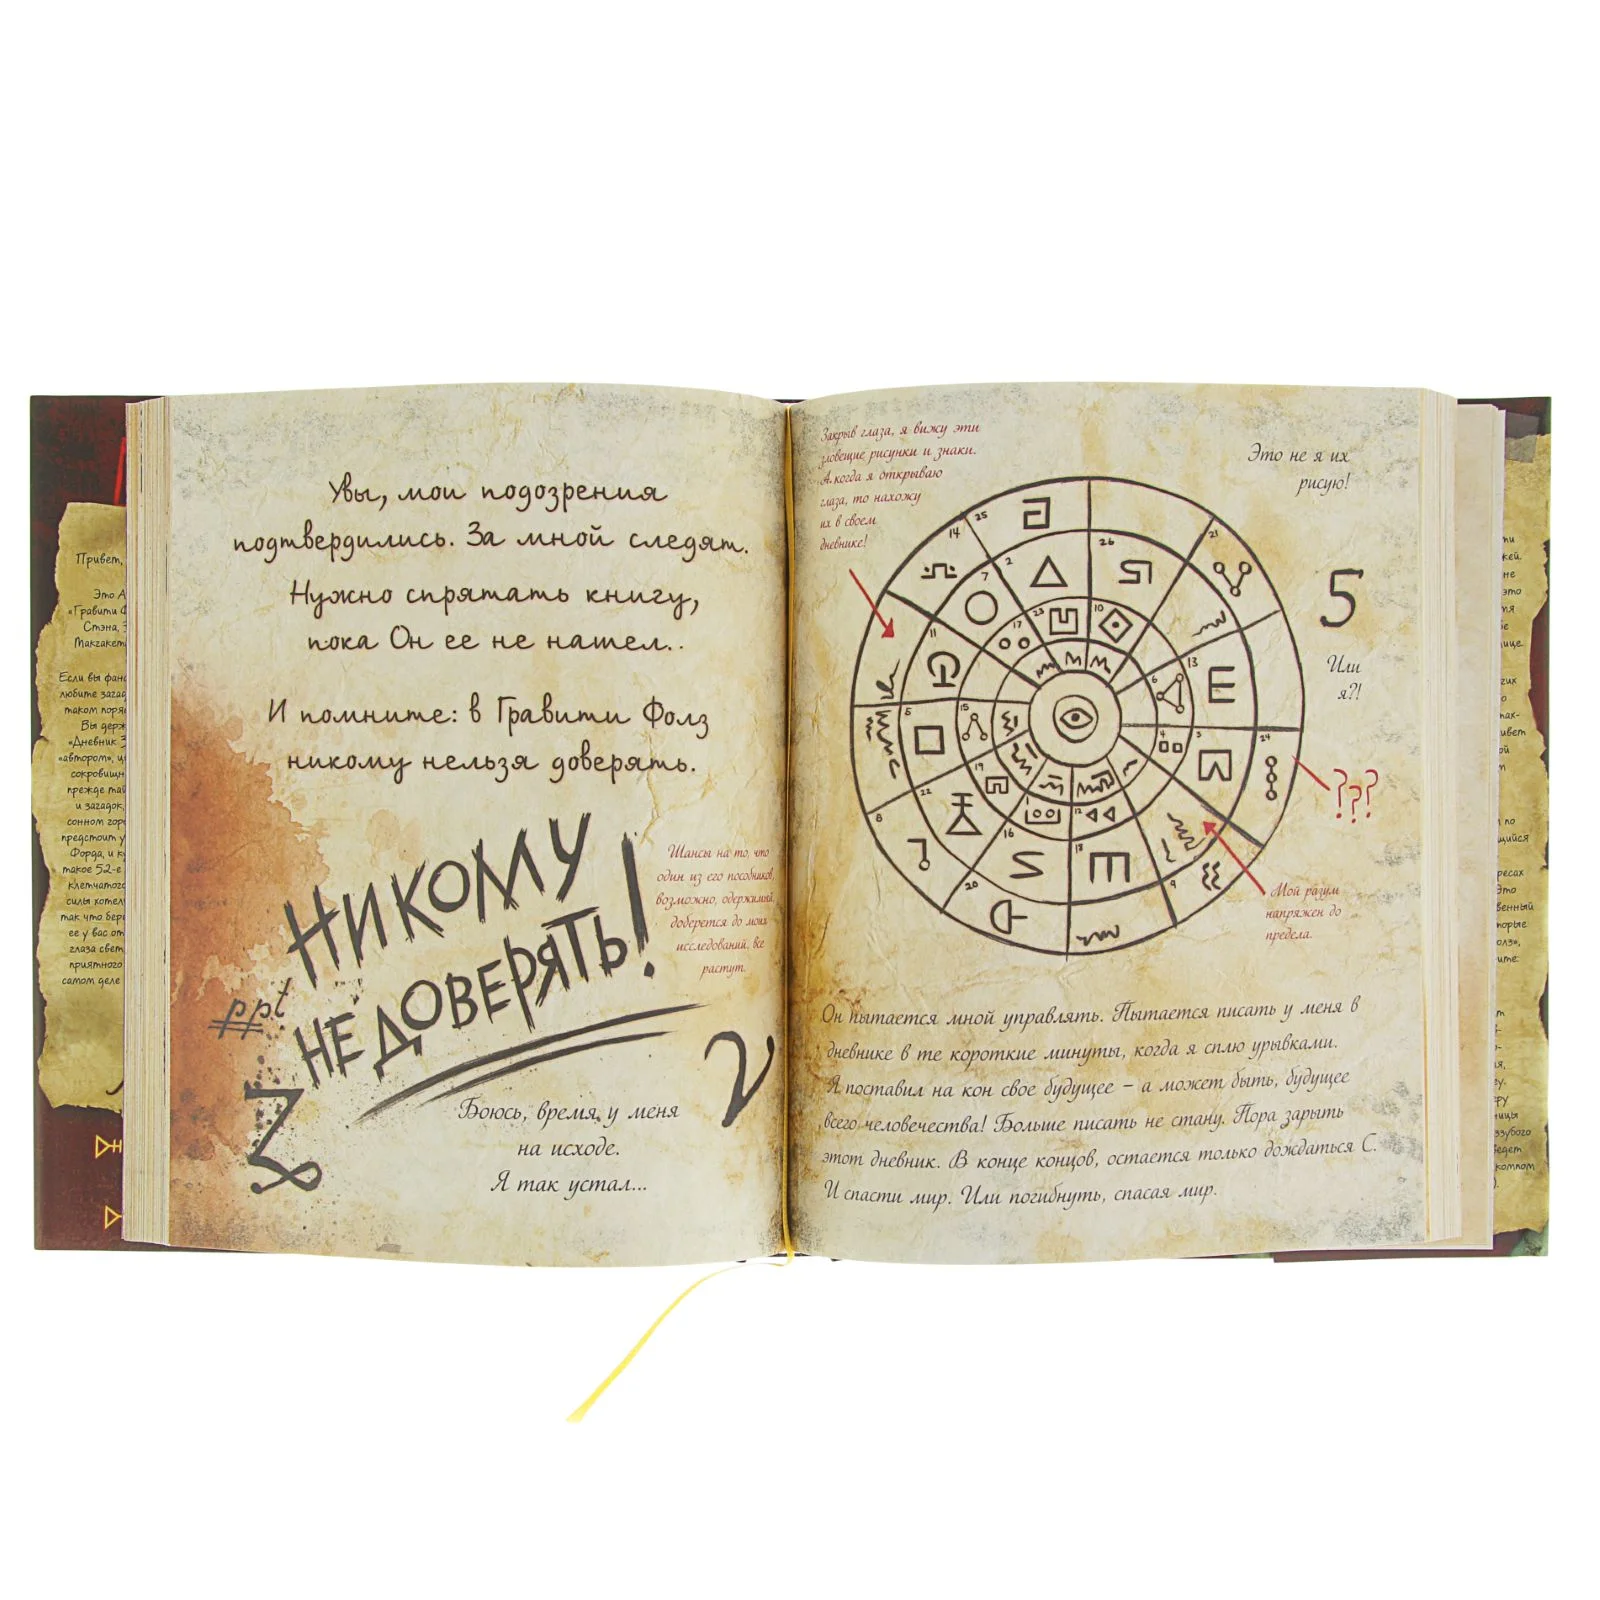 Увы, мои подозрения
подтвердились. За мной следят.
Нужно спрятать книгу,
пока Он ее не нашел..
И помните: в Гравити Фолз
никому нельзя доверять.
НИКОМУ
НЕ ДОВЕРЯТЬ!
Шансы на то, что
один из его пособников,
возможно, одержимый,
доберется до моих
исследований, все
растут.
ppt
Боюсь, время у меня
на исходе.
Я так устал...
2
Закрыв глаза, я вижу эти
зловещие рисунки и знаки.
А когда я открываю
глаза, то нахожу
их в своем
дневнике!
Это не я их
рисую!
5
Или
я?!
???
25
14
26
21
2
7
11
23
10
17
13
6
5
15
4
3
24
19
22
8
1
12
16
18
20
9
Мой разум
напряжен до
предела.
Он пытается мной управлять. Пытается писать у меня в
дневнике в те короткие минуты, когда я сплю урывками.
Я поставил на кон свое будущее – а может быть, будущее
всего человечества! Больше писать не стану. Пора зарыть
этот дневник. В конце концов, остается только дождаться С.
И спасти мир. Или погибнуть, спасая мир.
Привет,
Это А
«Гравити Ф
Стэна,
Макгакет
Если вы фан
любите загад
таком поря
Вы держ
«Дневник 3
«автором», ц
сокровищн
прежде тай
и загадок,
сонном гор
предстоит у
Форда, и к
такое 52-е
клетчатого
силы хотел
так что бер
ее у вас от
глаза свет
приятного
самом деле